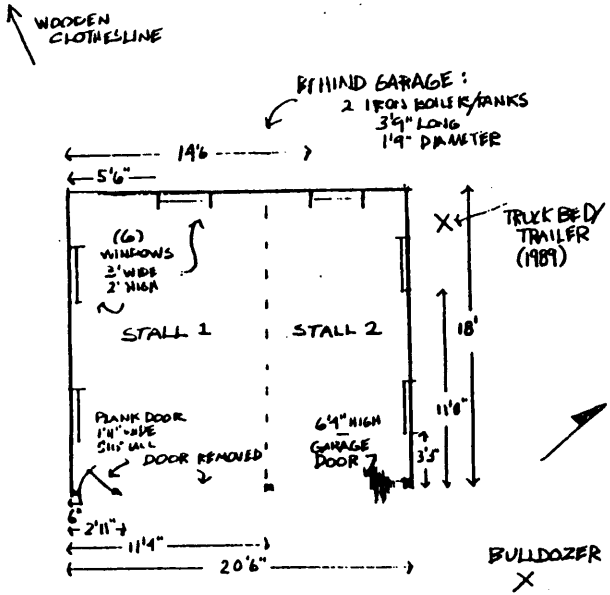 WOODEN
CLOTHESLINE
BEHIND GARAGE:
2 IRON BOILER/TANKS
3'9" LONG
1'9" DIAMETER
14'6
5'6"
(6)
WINDOWS
2' WIDE
2' HIGH
TRUCK BED/
TRAILER
(1989)
STALL 1
STALL 2
18'
11'8"
PLANK DOOR
WIDE
DOOR REMOVED
6'4" HIGH
GARAGE
DOOR
3'5
6"
2'11"
11'4"
20'6"
BULLDOZER
X